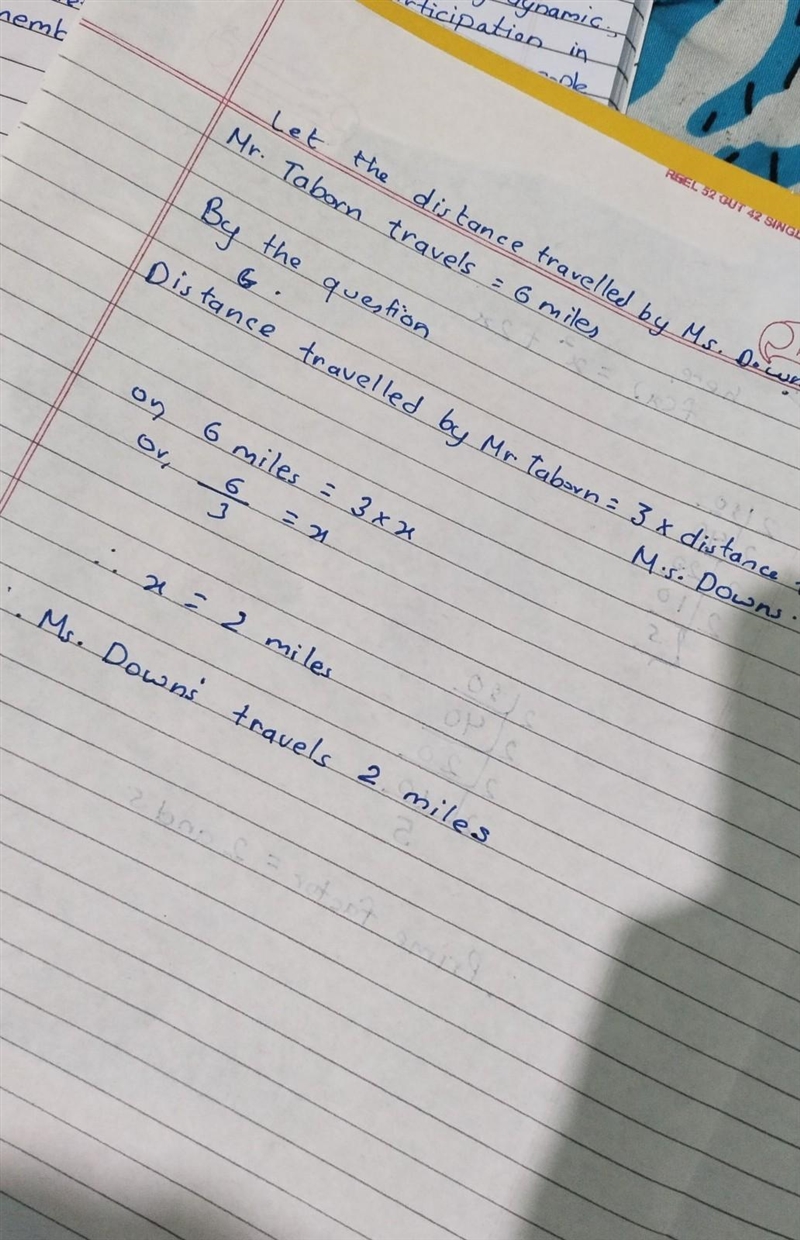 dynamic,
rticipation in
memb
REEL 52 GUT 42 SINGL
Let the distance travelled by Ms. Down
Mr. Taborn travels = 6 miles
By the question
6.
Distance travelled by Mr Taborn = 3 × distance
M.s. Downs.
or, 6 miles = 3 × x
Or, 6/3 = x
∴ x = 2 miles
∴ Ms. Downs' travels 2 miles
2 80
2 40
2 20
5
Prime factor = 2 and 5